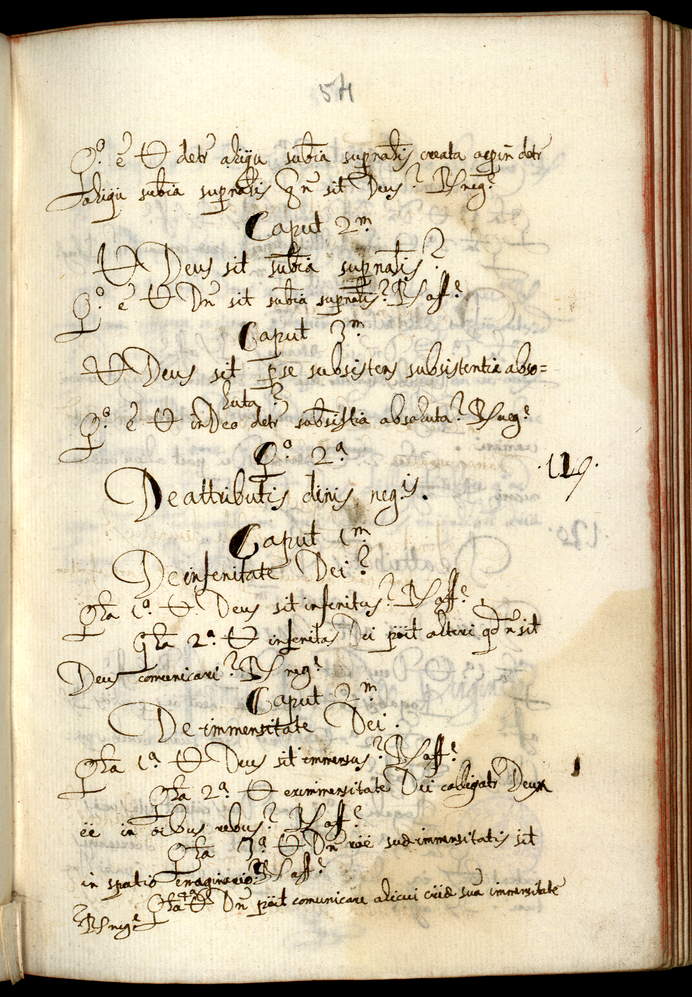 54
Qº. ẽ Vt detʳ aliqu subĩa supr̃nalis creata ac pin detʳ
aliqu subĩa supr̃nalis q̃ ñ sit Deus? R neg.ᵉ
Caput 2.ᵐ
Vt Deus sit subĩa supr̃nalis?
Qº. ẽ Vt Ds̃ sit subĩa supr̃nalis? R aff.ᵉ
Caput 3.ᵐ
Vt Deus sit p̱ se subsistens subsistentia abso=
luta?
Qº. ẽ Vt in Deo detʳ subsist̃ia absoluta? R neg.ᵉ
Qº. 2.ª
De attributis divis neg.ˢ.
.119.
Caput 1.ᵐ
De infenitate Dei?
Qt̃a 1.ª Vt Deus sit infenitus? R aff.ᵉ
Qt̃a 2.ª Vt infenitas Dei põit alteri qd ñ sit
Deus comunicari? R neg.ᵉ
Caput 2.ᵐ
De immensitate Dei.
Qt̃a 1.ª Vt Deus sit immensus? R aff.ᵉ
Qt̃a 2.ª Vt ex immensitate Dei colligatʳ Deum
ẽe in oĩbus rebus? R aff.ᵉ
Qt̃a 3.ª Vt Ds̃ rõe suæ immensitatis sit
in spatio imaginario? R aff.ᵉ
Qt̃a 4.ª Vt Ds̃ põit comunicare alicui sua immensitatẽ
? R neg.ᵉ